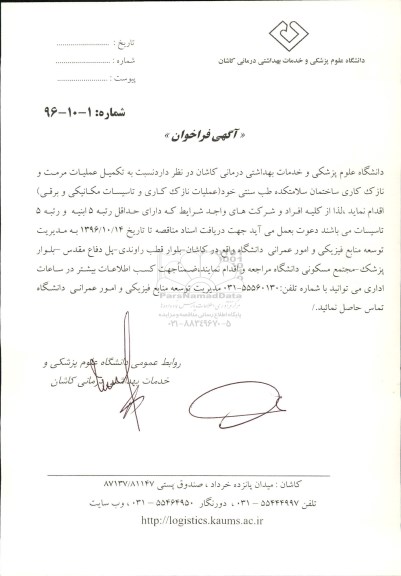 دانشگاه علوم پزشکی و خدمات بهداشتی درمانی کاشان
تاریخ : ..........................
شماره : ..........................
پیوست : ........................
شماره: ۱-۱۰-۹۶
« آگهی فراخوان »
دانشگاه علوم پزشکی و خدمات بهداشتی درمانی کاشان در نظر داردنسبت به تکمیل عملیات مرمت و
نازک کاری ساختمان سلامتکده طب سنتی خود(عملیات نازک کاری و تاسیسات مکانیکی و برقی)
اقدام نماید ،لذا از کلیه افراد و شرکت های واجد شرایط که دارای حداقل رتبه ۵ ابنیه و رتبه ۵
تاسیسات می باشند دعوت بعمل می آید جهت دریافت اسناد مناقصه تا تاریخ ۱۳۹۶/۱۰/۱۴ به مدیریت
توسعه منابع فیزیکی و امور عمرانی دانشگاه واقع در کاشان-بلوار قطب راوندی-پل دفاع مقدس -بلوار
پزشک-مجتمع مسکونی دانشگاه مراجعه و اقدام نمایند،ضمناًجهت کسب اطلاعات بیشتر در ساعات
اداری می توانید با شماره تلفن:۵۵۵۶۰۱۳۰-۰۳۱ مدیریت توسعه منابع فیزیکی و امور عمرانی دانشگاه
تماس حاصل نمائید./
ParsNamadData
پایگاه اطلاع رسانی مناقصه و مزایده
۰۲۱-۸۸۳۴۹۶۷۰-۵
روابط عمومی دانشگاه علوم پزشکی و
خدمات بهداشتی درمانی کاشان
کاشان : میدان پانزده خرداد ، صندوق پستی ۸۷۱۳۷/۸۱۱۴۷
تلفن ۵۵۴۴۴۹۹۷-۰۳۱ ، دورنگار ۵۵۴۶۴۹۵۰-۰۳۱ ، وب سایت
http://logistics.kaums.ac.ir